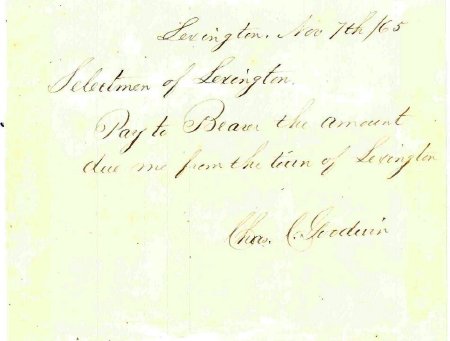 Lexington. Nov 7th /65
Selectmen of Lexington.
Pay to Bearer the amount
due me from the town of Lexington
Chas. C. Goodwin